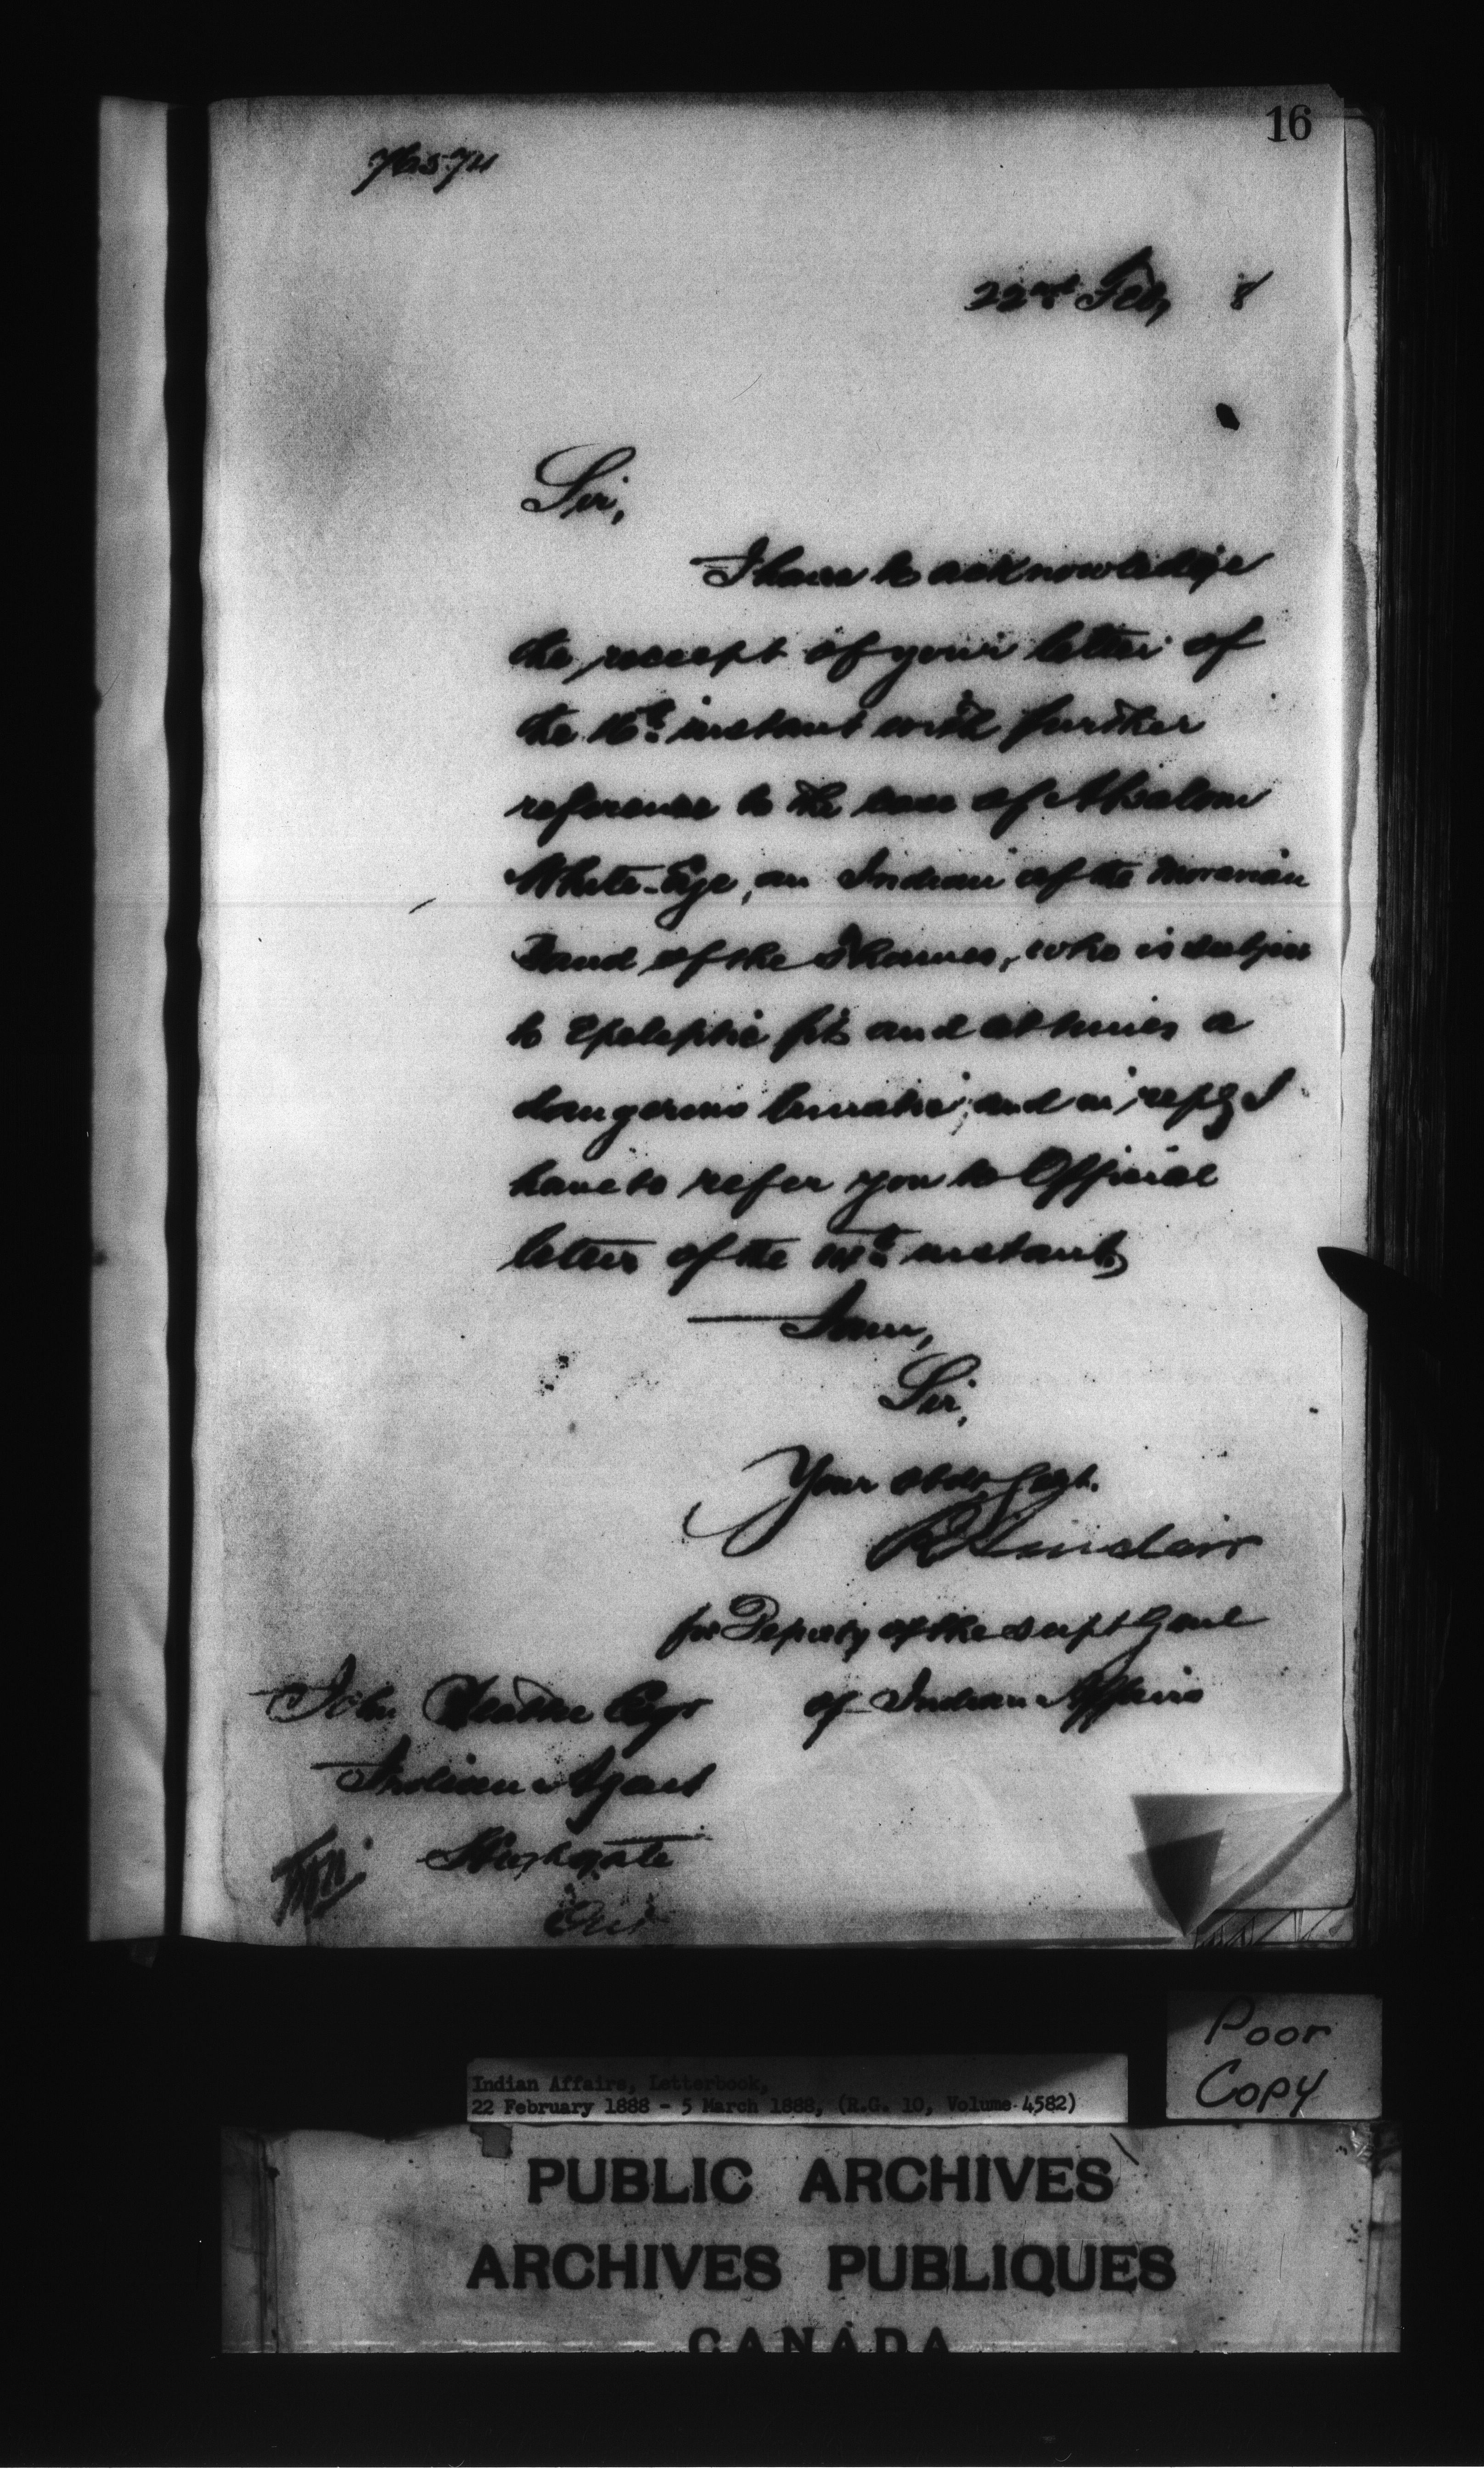 16
76574
22nd Feb, 8
Sir,
I have to acknowledge
the receipt of your letter of
the 16th instant with further
reference to the case of Absalom
White-Eye, an Indian of the Moravian
Band of the Thames, who is subject
to Epileptic fits and at times a
dangerous lunatic; and in reply I
have to refer you to Official
letter of the instant,
I am,
Sir,
Your obdt Servt.
R Sinclair
for Deputy of the Supt Genl
of Indian Affairs
John Beattie Esqr
Indian Agent
Highgate
Ont
Poor
Copy
Indian Affairs, Letterbook,
22 February 1888 - 5 March 1888, (R.G. 10, Volume 4582)
PUBLIC ARCHIVES
ARCHIVES PUBLIQUES
CANADA